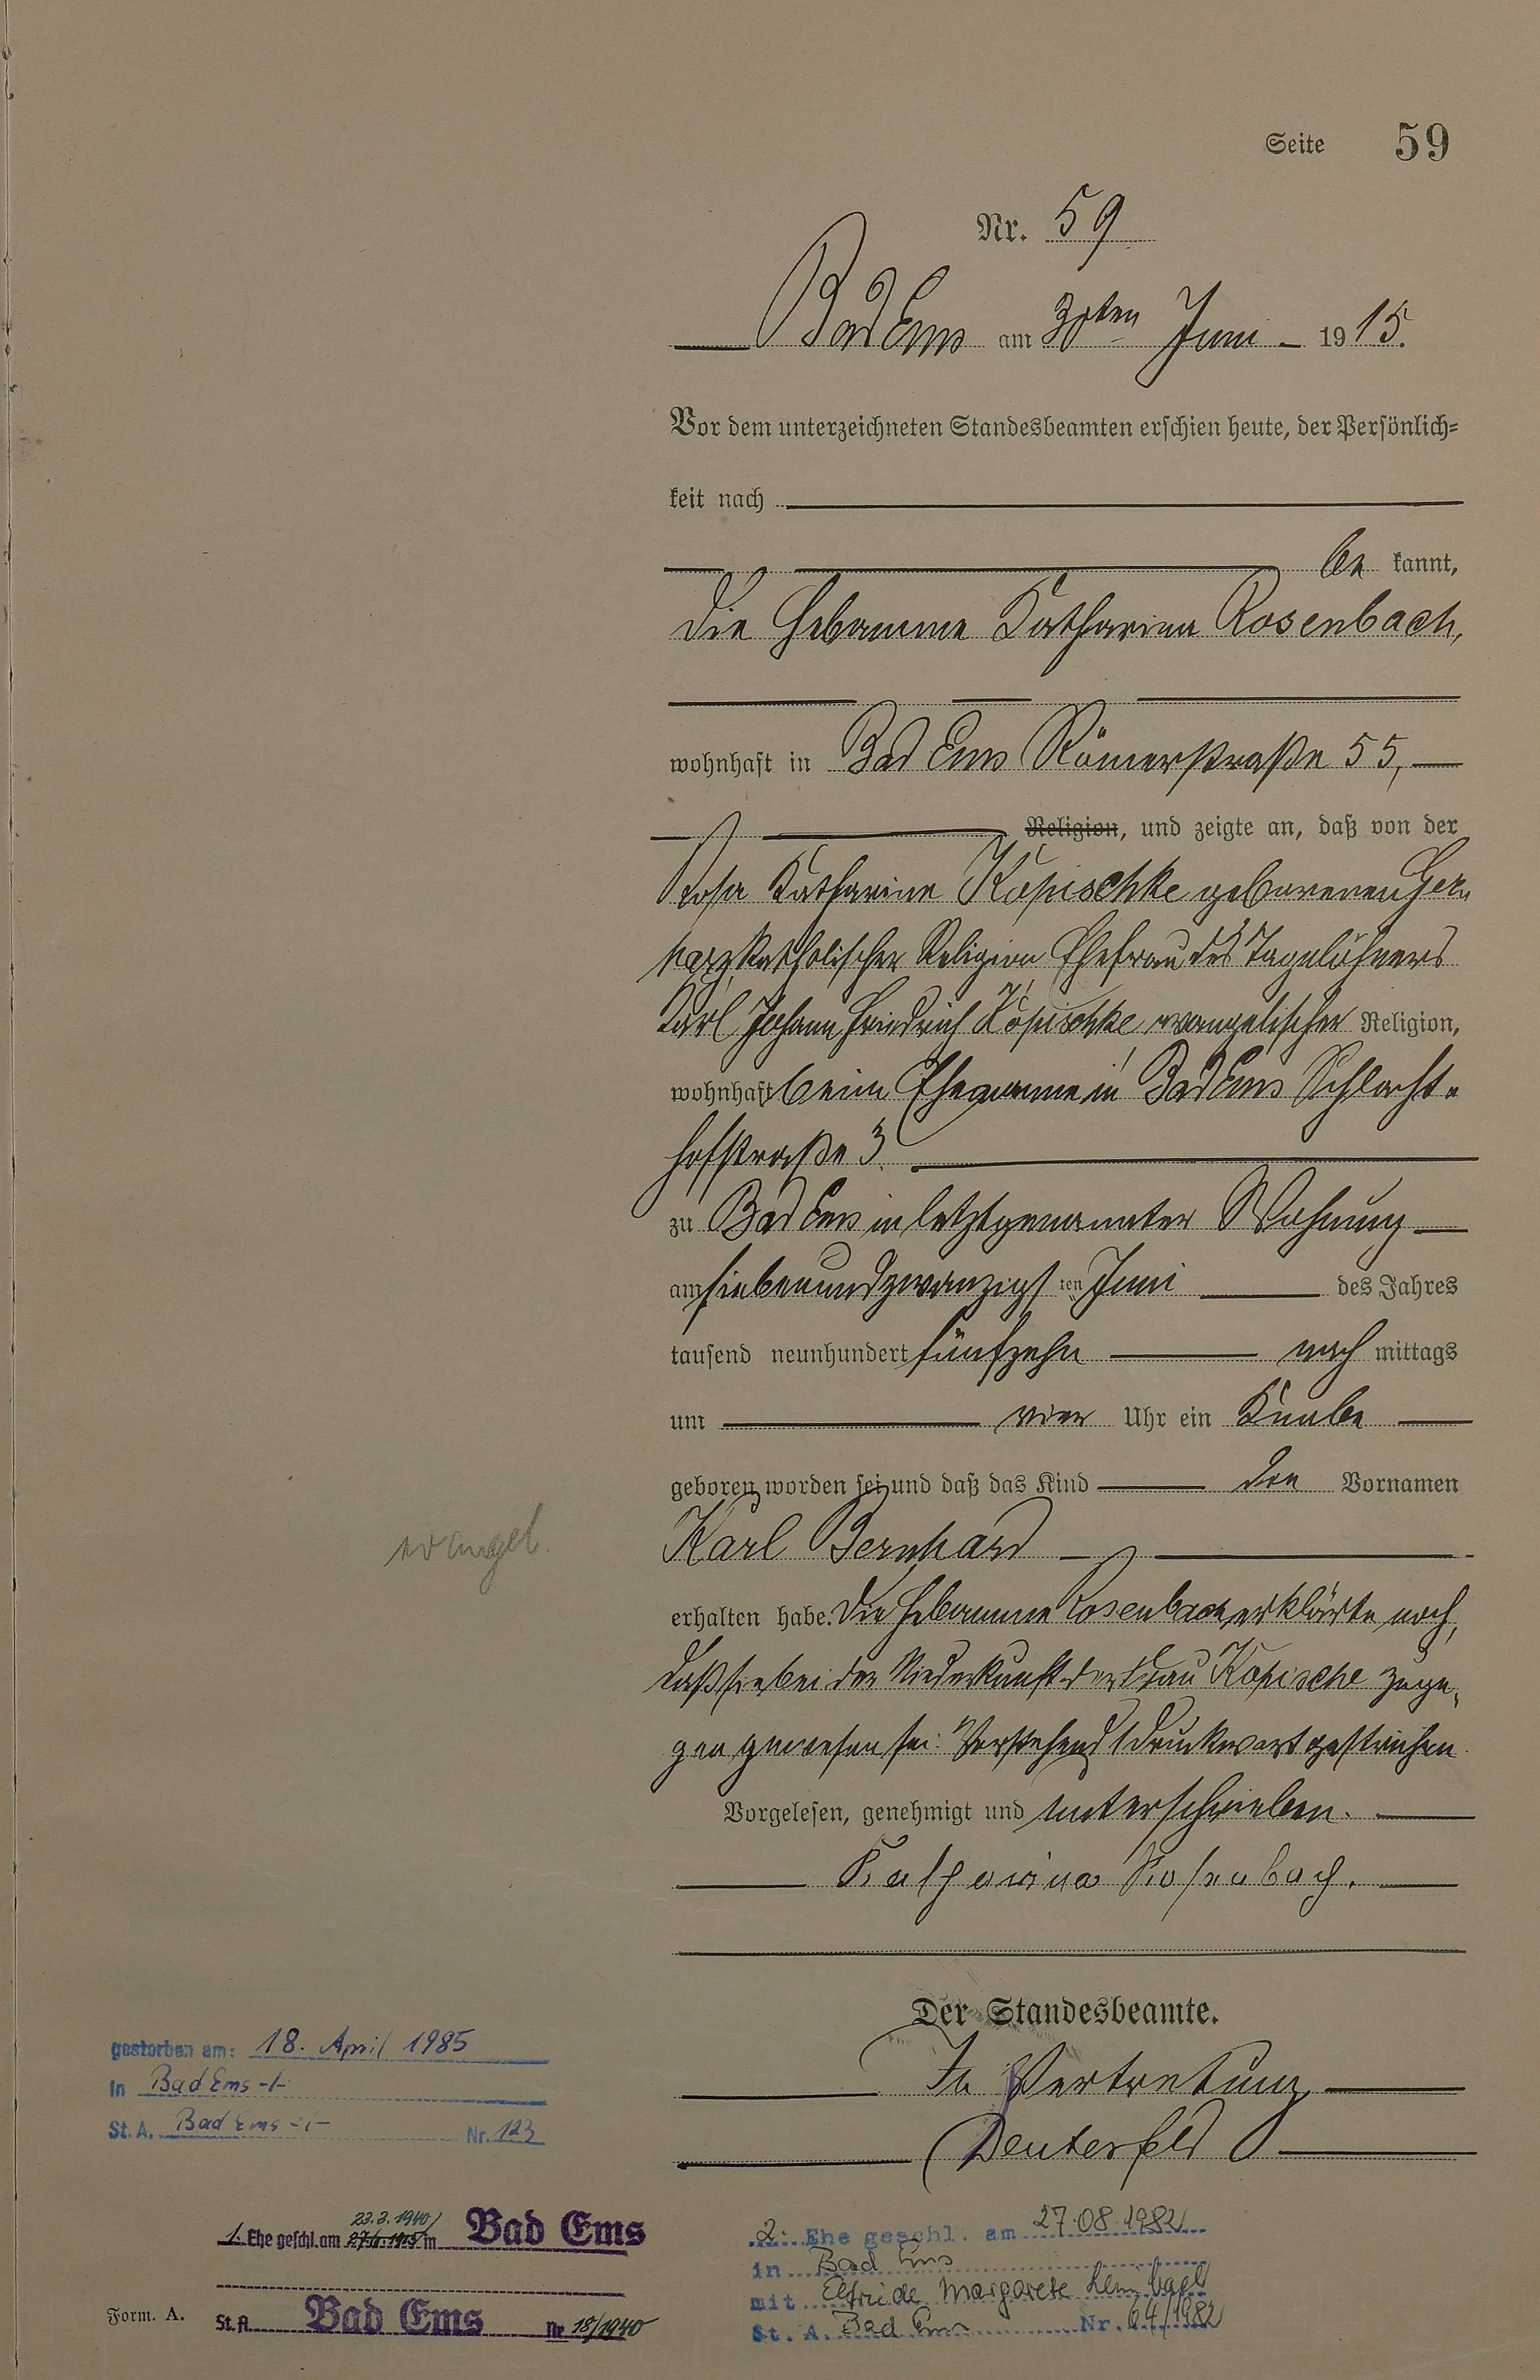 Seite 59
Nr. 59
Bad Ems am 30ten Juni 1915.
Vor dem unterzeichneten Standesbeamten erschien heute, der Persönlich=
keit nach
be kannt,
die Hebamme Katharina Rosenbach,
wohnhaft in Bad Ems Römerstraße 55,
Religion, und zeigte an, daß von der
Rosa Katharina Köpischke geborenen
katholischer Religion Ehefrau des Tagelöhners
Karl Johann Friedrich Köpischke, evangelischer Religion,
wohnhaft beim Ehemanne in Bad Ems Schlacht-
hofstraße 3.
zu Bad Ems in letztgenannter Wohnung
am siebenundzwanzigsten Juni des Jahres
tausend neunhundert fünfzehn nach mittags
um vier Uhr ein Knabe
geboren worden sei und daß das Kind die Vornamen
evangel.
Karl Bernhard
erhalten habe. Die Hebamme Rosenbach erklärte noch,
daß sie bei der Niederkunft der Frau Köpische zuge-
gen gewesen sei. Vorstehend 1 Druckwort gestrichen.
Vorgelesen, genehmigt und unterschrieben.
Katharina Rosenbach.
Der Standesbeamte.
In Vertretung
Deuterfeld
gestorben am: 18. April 1985
in Bad Ems -/-
St. A. Bad Ems -/- Nr. 123
23.3.1940
1. Ehe geschl. am 27.6.1915 in Bad Ems
St. A. Bad Ems Nr. 18/1940
2. Ehe geschl. am 27.08.1982
in Bad Ems
mit Elfriede Margarete
St. A. Bad Ems Nr. 64/1982
Form. A.